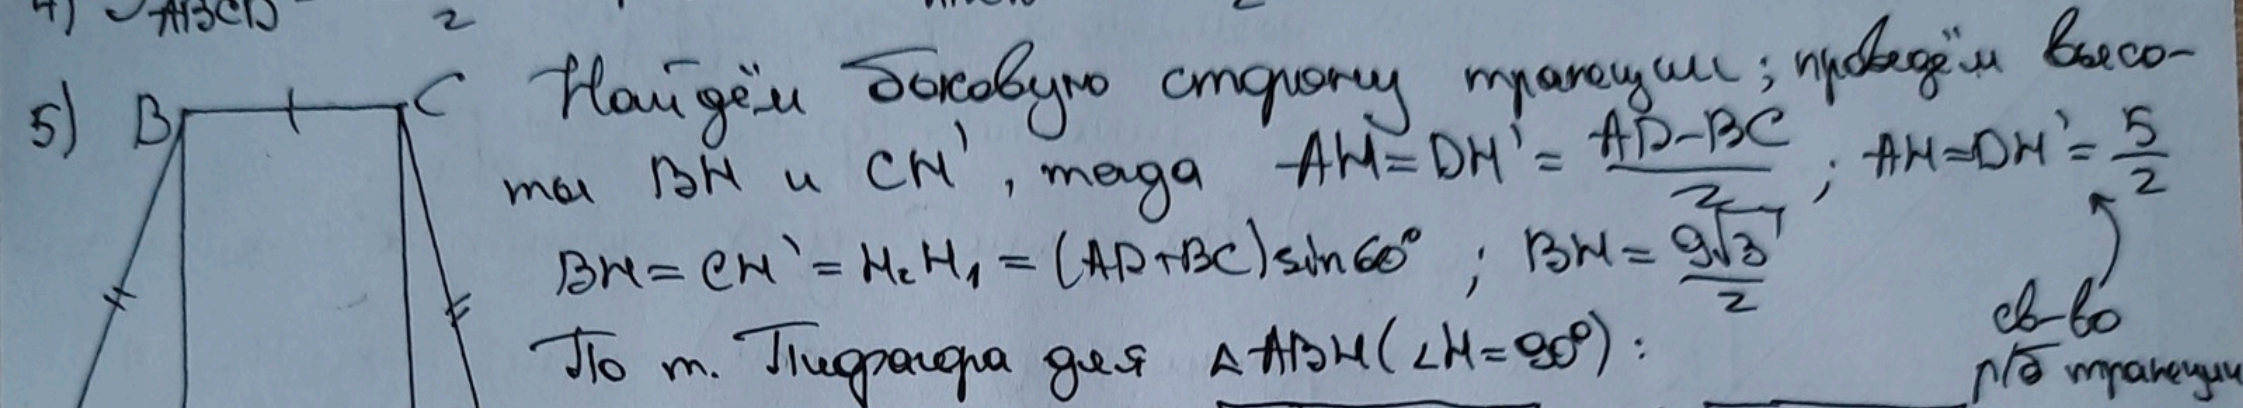 4) ABCD 2 2
5) B C Найдём боковую сторону трапеции; проведём высо-
ты BH и CH', тогда AH=DH'= (AD-BC)/2 ; AH=DH'= 5/2
BH=CH'=H₂H₁=(AD+BC)sin60° ; BH= 9√3/2
св-во
По т. Пифагора для △ABH(∠H=90°):
р/б трапеции